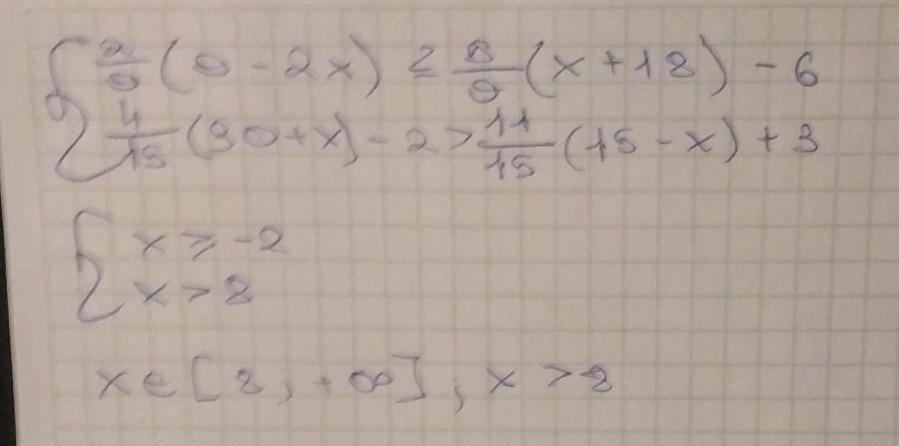 { 2/9 (9 - 2x) ≤ 5/9 (x + 18) - 6
4/15 (30 + x) - 2 > 11/15 (15 - x) + 3
{ x ≥ -2
x > 8
x ∈ [8; +∞], x > 8